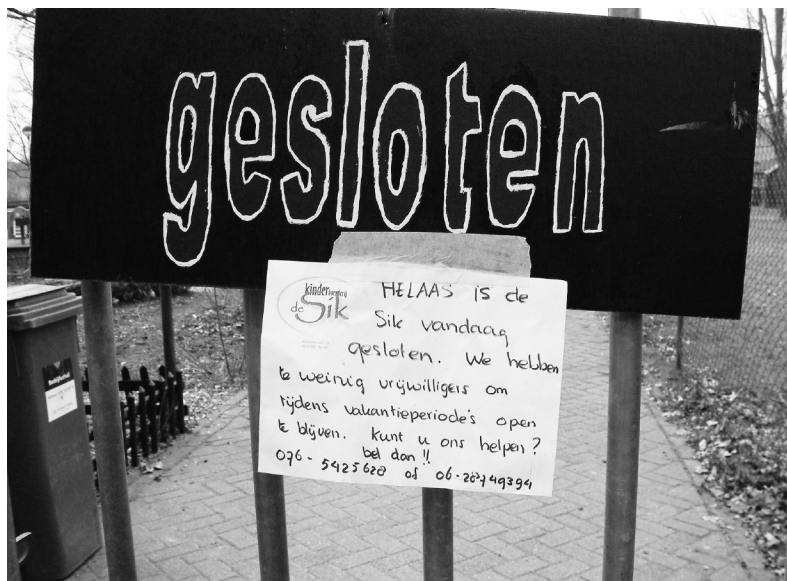 gesloten
kinderboerderij
de Sik
HELAAS is de
Sik vandaag
gesloten. We hebben
te weinig vrijwilligers om
tijdens vakantieperiode's open
te blijven. Kunt u ons helpen?
bel dan!!
076-5425628 of 06-28749394